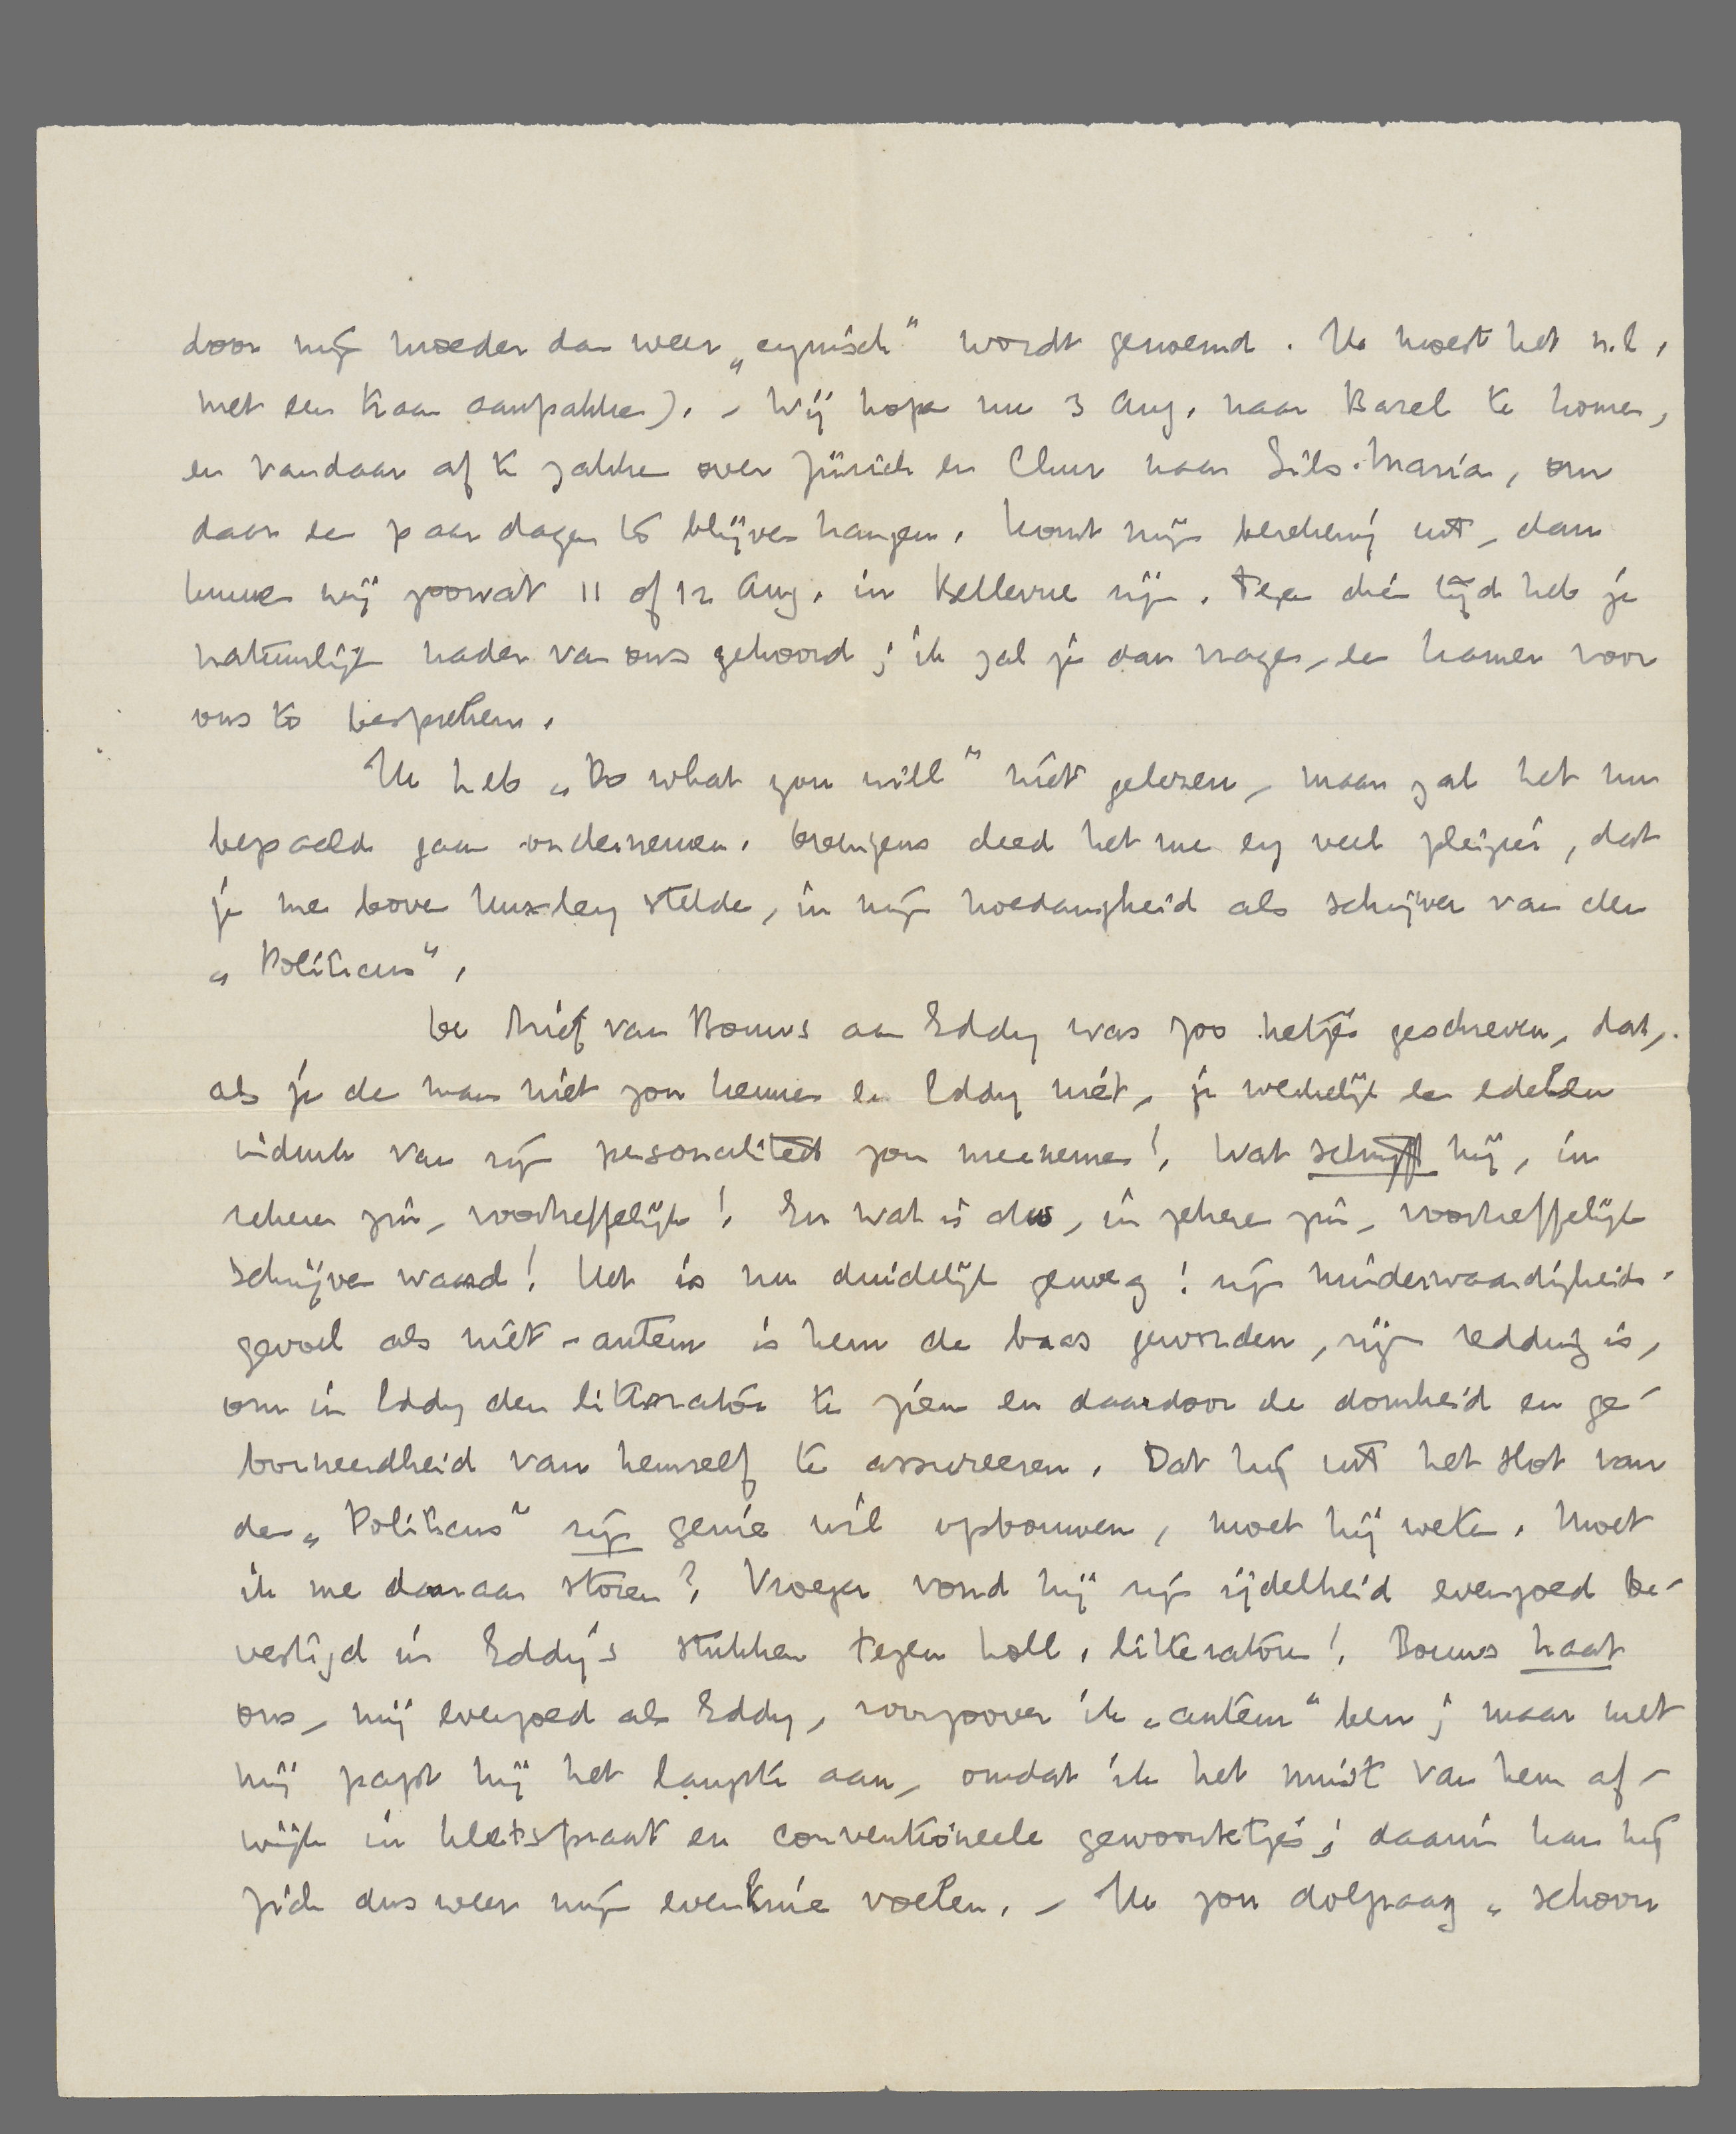 door mijn moeder dan weer „cynisch” wordt genoemd. Ik moest het n.l.
met een traan aanpakken). – Wij hopen nu 3 Aug. naar Bazel te komen,
en vandaar af te zakken over Zürich en Chur naar Sils-Maria, om
daar een paar dagen te blijven hangen. Komt mijn berekening uit, dan
kunnen wij zoowat 11 of 12 Aug. in Bellevue zijn. Tegen dié tijd heb je
natuurlijk nader van ons gehoord; ik zal je dan vragen, een kamer voor
ons te bespreken.
Ik heb „Do what you will” niet gelezen, maar zal het nu
bepaald gaan ondernemen. Overigens deed het me erg veel pleizier, dat
je me boven Huxley stelde, in mijn hoedanigheid als schrijver van den
„Politicus”.
De brief van Bouws aan Eddy was zoo netjes geschreven, dat,
als je de man niet zou kennen en Eddy niet, je werkelijk een edelen
indruk van zijn personaliteit zou meenemen! Wat schrijft hij, in
zekeren zin, voortreffelijk! En wat is dus, in zekeren zin, voortreffelijk
schrijven waard! Het is nu duidelijk genoeg: zijn minderwaardigheids-
gevoel als niet-auteur is hem de baas geworden, zijn redding is,
om in Eddy den litterator te zien en daardoor de domheid en ge-
borneerdheid van hemzelf te assureeren. Dat hij uit het slot van
den „Politicus” zijn genie wil opbouwen, moet hij weten. Moet
ik me daaraan storen? Vroeger vond hij zijn ijdelheid evengoed be-
vestigd in Eddy's stukken tegen holl. litteratoren! Bouws haat
ons, mij evengoed als Eddy, voorzoover ik „auteur” ben; maar met
mij papt hij het langste aan, omdat ik het minst van hem af-
wijk in kletspraat en conventioneele gewoontetjes; daarin kan hij
zich dus weer mijn evenknie voelen. – Ik zou dolgraag „schoon